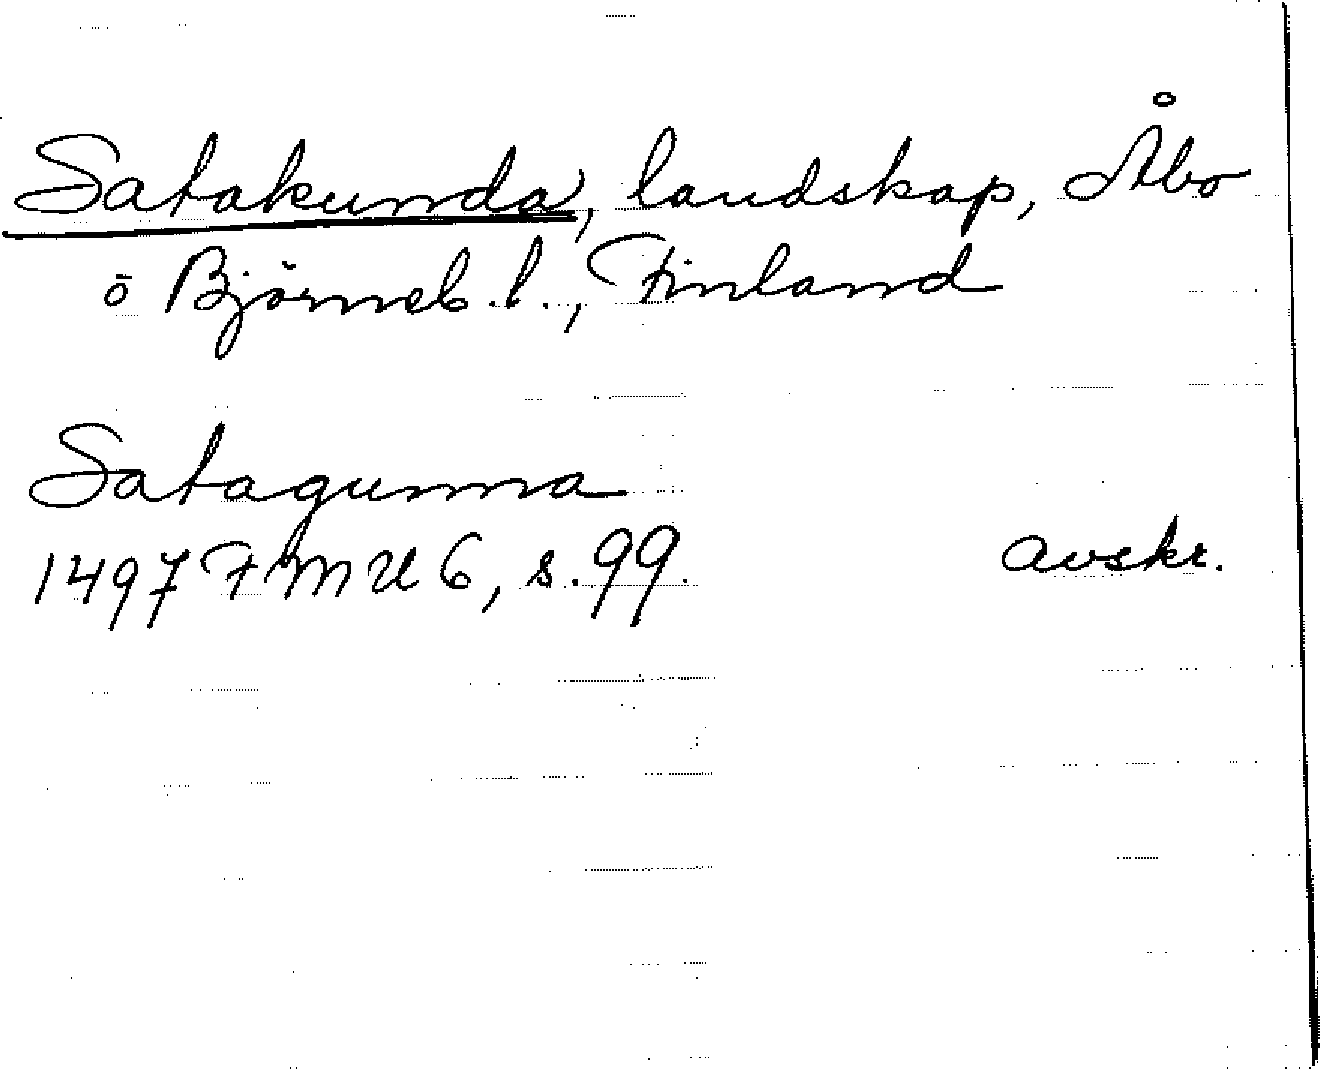 Satakunda, landskap, Åbo
o Björneb. l., Finland
Satagunna
1497 FMU 6, s. 99. avskr.